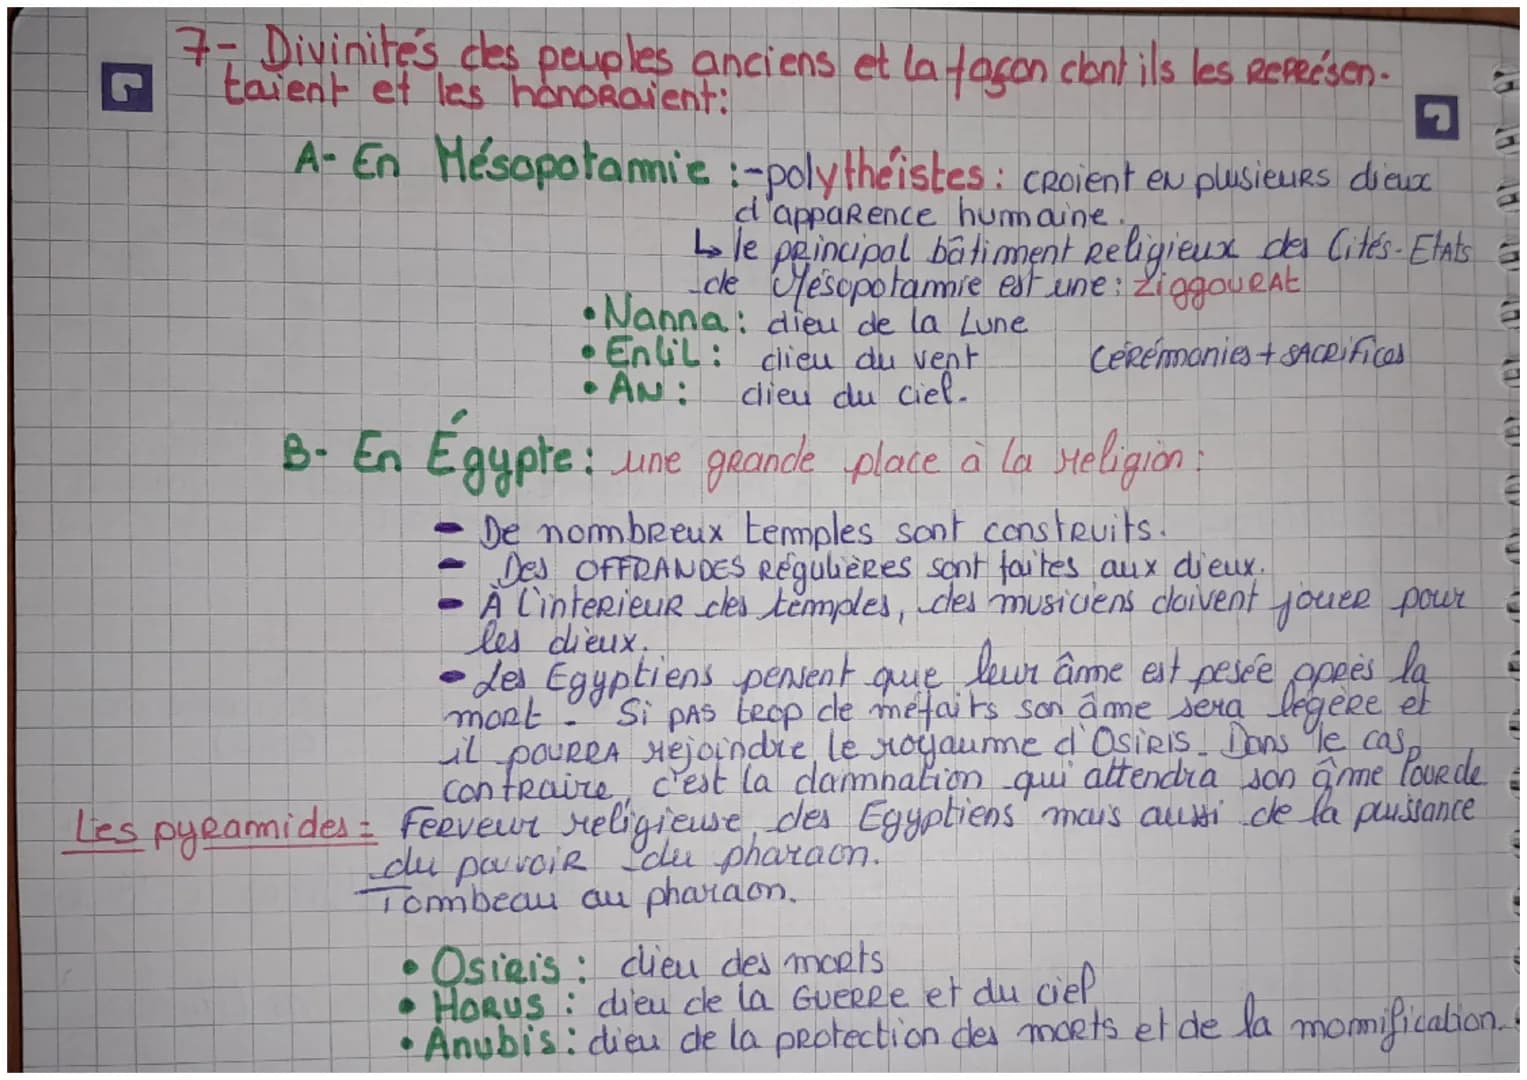 7- Divinités des peuples anciens et la façon dont ils les représen-
taient et les honoraient:
A- En Mésopotamie :-polythéistes: croient en plusieurs dieux
d'apparence humaine.
↳ le principal bâtiment religieux des Cités-Etats
de Mésopotamie est une: ziggourat
• Nanna: dieu de la Lune
• Enlil: dieu du vent cérémonies + sacrifices
• An: dieu du ciel.
B- En Égypte: une grande place à la religion:
- De nombreux temples sont construits.
- Des OFFRANDES Régulières sont faites aux dieux.
- À l'interieur des temples, des musiciens doivent jouer pour
les dieux.
- Les Egyptiens pensent que leur âme est pesée après la
mort. Si pas trop de méfaits son âme sera légère et
il pourra rejoindre le royaume d'Osiris. Dans le cas
contraire, c'est la damnation qui attendra son âme lourde
Les pyramides = Ferveur religieuse des Egyptiens mais aussi de la puissance
du pouvoir du pharaon.
Tombeau au pharaon.
• Osiris: dieu des morts
• Horus: dieu de la Guerre et du ciel
• Anubis: dieu de la protection des morts et de la momification.